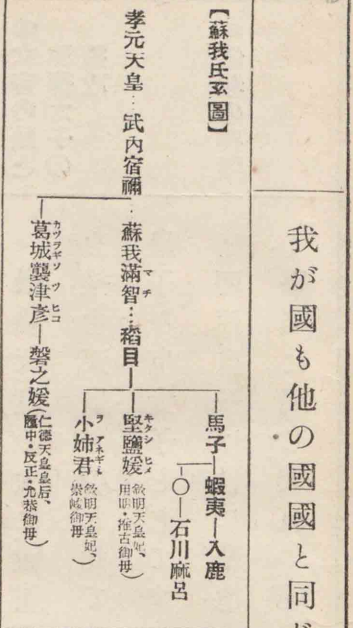 我が國も他の國國と同
【蘇我氏系圖】
孝元天皇…武內宿禰
蘇我滿智…稻目
マチ
馬子―蝦夷―入鹿
○―石川麻呂
堅鹽媛
キタシヒメ
欽明天皇妃、
用明・推古御母
小姉君
ヲアネギミ
欽明天皇妃、
崇峻御母
葛城襲津彥―磐之媛
カツラギソツヒコ
仁德天皇皇后、
履中・反正・允恭御母